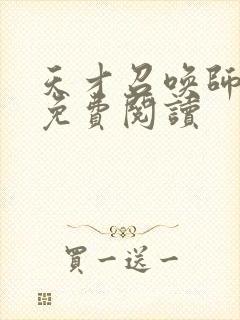 天才召喚師
免費閱讀
買一送一